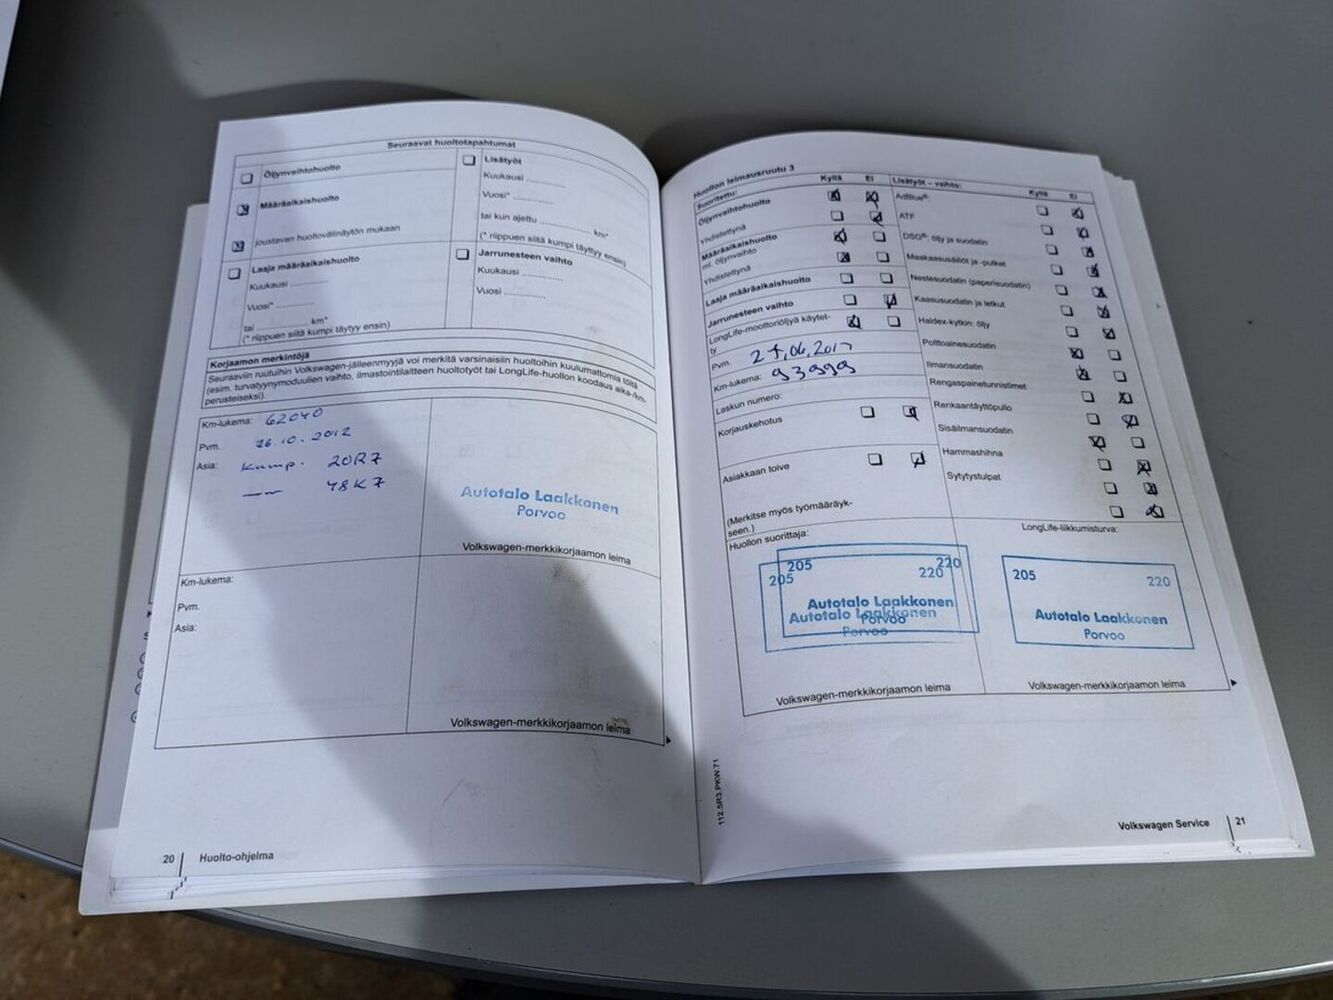 Seuraavat huoltotapahtumat
Öljynvaihtohuolto
Määräaikaishuolto
joustavan huoltovälinäytön mukaan
Laaja määräaikaishuolto
Kuukausi
Vuosi*
tai km*
(* riippuen siitä kumpi täytyy ensin)
Lisätyöt
Kuukausi
Vuosi*
tai kun ajettu km*
(* riippuen siitä kumpi täyttyy ensin)
Jarrunesteen vaihto
Kuukausi
Vuosi
Korjaamon merkintöjä
Seuraaviin ruutuihin Volkswagen-jälleenmyyjä voi merkitä varsinaisiin huoltoihin kuulumattomia töitä
(esim. turvatyynymoduulien vaihto, ilmastointilaitteen huoltotyöt tai LongLife-huollon koodaus aika-/km-
perusteiseksi).
Km-lukema: 62040
Pvm. 26.10.2012
Asia: Kump. 20R7
48K7
Autotalo Laakkonen
Porvoo
Volkswagen-merkkikorjaamon leima
Km-lukema:
Pvm.
Asia:
Volkswagen-merkkikorjaamon leima
20 Huolto-ohjelma
Huollon leimausruutu 3
Suoritettu: Kyllä Ei
Öljynvaihtohuolto
Yhdistettynä
Määräaikaishuolto
ml. öljynvaihto
Yhdistettynä
Laaja määräaikaishuolto
Jarrunesteen vaihto
LongLife-moottoriöljyä käytet-
ty
Pvm.
Km-lukema: 93999
Laskun numero:
Korjauskehotus
Asiakkaan toive
(Merkitse myös työmääräyk-
seen.)
Lisätyöt – vaihto: Kyllä Ei
AdBlue®:
ATF
DSG®: öljy ja suodatin
Maakaasusäiliöt ja -putket
Nestesuodatin (paperisuodatin)
Kaasusuodatin ja letkut
Haldex-kytkin: öljy
Polttoainesuodatin
Ilmansuodatin
Rengaspainetunnistimet
Renkaantäyttöpullo
Sisäilmansuodatin
Hammashihna
Sytytystulpat
Huollon suorittaja:
205 220
205 220
Autotalo Laakkonen
Autotalo Laakkonen
Porvoo
Porvoo
Volkswagen-merkkikorjaamon leima
LongLife-liikkumisturva:
205 220
Autotalo Laakkonen
Porvoo
Volkswagen-merkkikorjaamon leima
112.5R3.PKW.71
Volkswagen Service 21